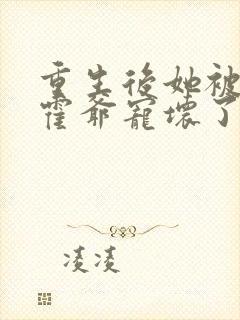 重生后她被
霍爷宠坏了
凌凌